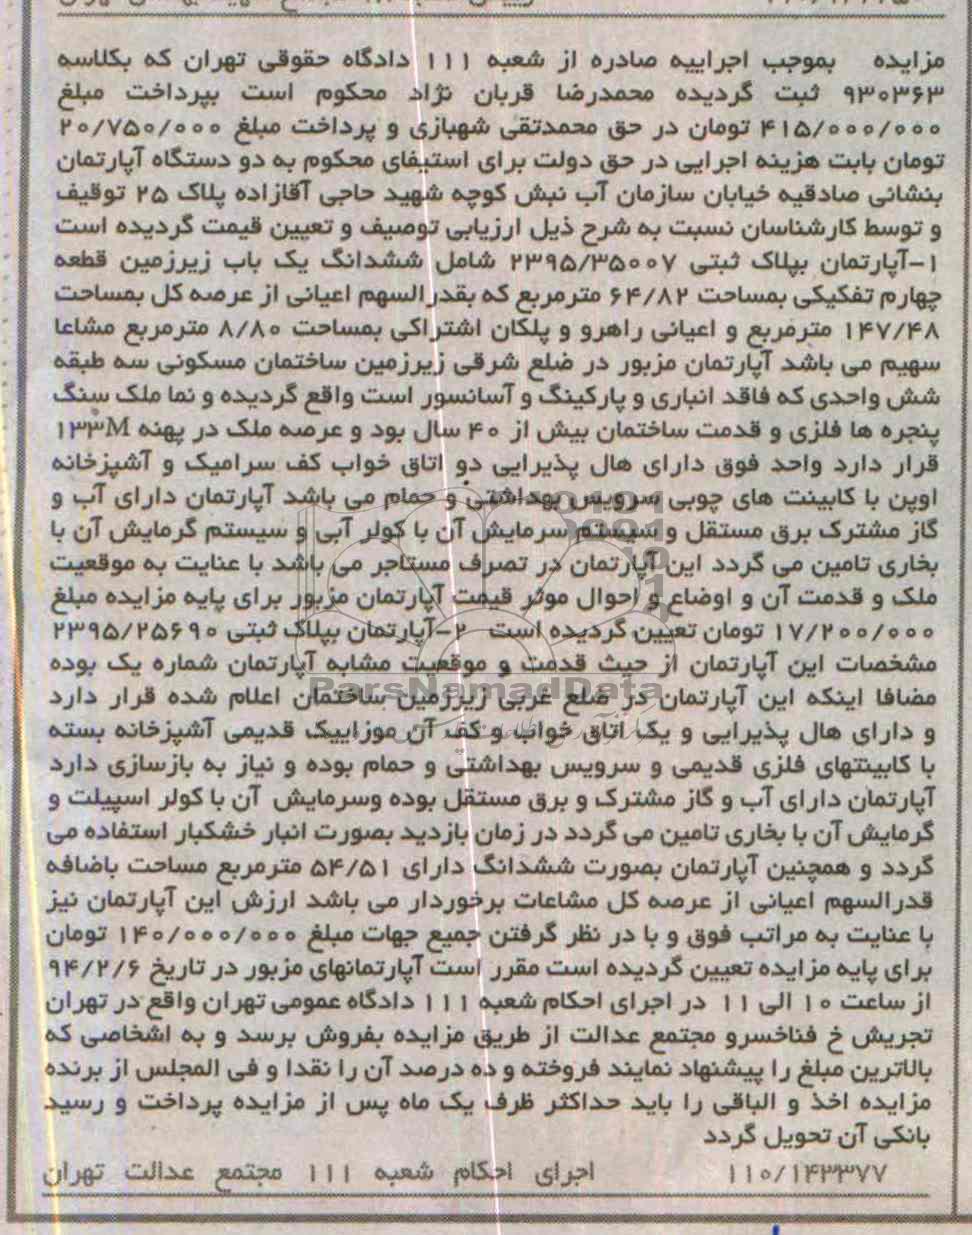 مزایده بموجب اجراییه صادره از شعبه ۱۱۱ دادگاه حقوقی تهران که بکلاسه
۹۳۰۳۶۳ ثبت گردیده محمدرضا قربان نژاد محکوم است بپرداخت مبلغ
۴۱۵/۰۰۰/۰۰۰ تومان در حق محمدتقی شهبازی و پرداخت مبلغ ۲۰/۷۵۰/۰۰۰
تومان بابت هزینه اجرایی در حق دولت برای استیفای محکوم به دو دستگاه آپارتمان
بنشانی صادقیه خیابان سازمان آب نبش کوچه شهید حاجی آقازاده پلاک ۲۵ توقیف
و توسط کارشناسان نسبت به شرح ذیل ارزیابی توصیف و تعیین قیمت گردیده است
۱-آپارتمان بپلاک ثبتی ۲۳۹۵/۳۵۰۰۷ شامل ششدانگ یک باب زیرزمین قطعه
چهارم تفکیکی بمساحت ۶۴/۸۲ مترمربع که بقدرالسهم اعیانی از عرصه کل بمساحت
۱۴۷/۴۸ مترمربع و اعیانی راهرو و پلکان اشتراکی بمساحت ۸/۸۰ مترمربع مشاعا
سهیم می باشد آپارتمان مزبور در ضلع شرقی زیرزمین ساختمان مسکونی سه طبقه
شش واحدی که فاقد انباری و پارکینگ و آسانسور است واقع گردیده و نما ملک سنگ
پنجره ها فلزی و قدمت ساختمان بیش از ۴۰ سال بود و عرصه ملک در پهنه ۱۳۳M
قرار دارد واحد فوق دارای هال پذیرایی دو اتاق خواب کف سرامیک و آشپزخانه
اوپن با کابینت های چوبی سرویس بهداشتی و حمام می باشد آپارتمان دارای آب و
گاز مشترک برق مستقل و سیستم سرمایش آن با کولر آبی و سیستم گرمایش آن با
بخاری تامین می گردد این آپارتمان در تصرف مستاجر می باشد با عنایت به موقعیت
ملک و قدمت آن و اوضاع و احوال موثر قیمت آپارتمان مزبور برای پایه مزایده مبلغ
۱۷/۲۰۰/۰۰۰ تومان تعیین گردیده است ۲-آپارتمان بپلاک ثبتی ۲۳۹۵/۲۵۶۹۰
مشخصات این آپارتمان از حیث قدمت و موقعیت مشابه آپارتمان شماره یک بوده
مضافا اینکه این آپارتمان در ضلع غربی زیرزمین ساختمان اعلام شده قرار دارد
و دارای هال پذیرایی و یک اتاق خواب و کف آن موزاییک قدیمی آشپزخانه بسته
با کابینتهای فلزی قدیمی و سرویس بهداشتی و حمام بوده و نیاز به بازسازی دارد
آپارتمان دارای آب و گاز مشترک و برق مستقل بوده وسرمایش آن با کولر اسپیلت و
گرمایش آن با بخاری تامین می گردد در زمان بازدید بصورت انبار خشکبار استفاده می
گردد و همچنین آپارتمان بصورت ششدانگ دارای ۵۴/۵۱ مترمربع مساحت باضافه
قدرالسهم اعیانی از عرصه کل مشاعات برخوردار می باشد ارزش این آپارتمان نیز
با عنایت به مراتب فوق و با در نظر گرفتن جمیع جهات مبلغ ۱۴۰/۰۰۰/۰۰۰ تومان
برای پایه مزایده تعیین گردیده است مقرر است آپارتمانهای مزبور در تاریخ ۹۴/۲/۶
از ساعت ۱۰ الی ۱۱ در اجرای احکام شعبه ۱۱۱ دادگاه عمومی تهران واقع در تهران
تجریش خ فناخسرو مجتمع عدالت از طریق مزایده بفروش برسد و به اشخاصی که
بالاترین مبلغ را پیشنهاد نمایند فروخته و ده درصد آن را نقدا و فی المجلس از برنده
مزایده اخذ و الباقی را باید حداکثر ظرف یک ماه پس از مزایده پرداخت و رسید
بانکی آن تحویل گردد
۱۱۰/۱۴۳۳۷۷ اجرای احکام شعبه ۱۱۱ مجتمع عدالت تهران
ParsNamadData